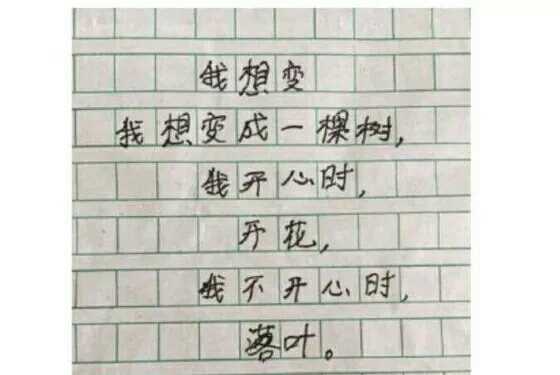 我想变
我想变成一棵树,
我开心时,
开花,
我不开心时,
落叶。